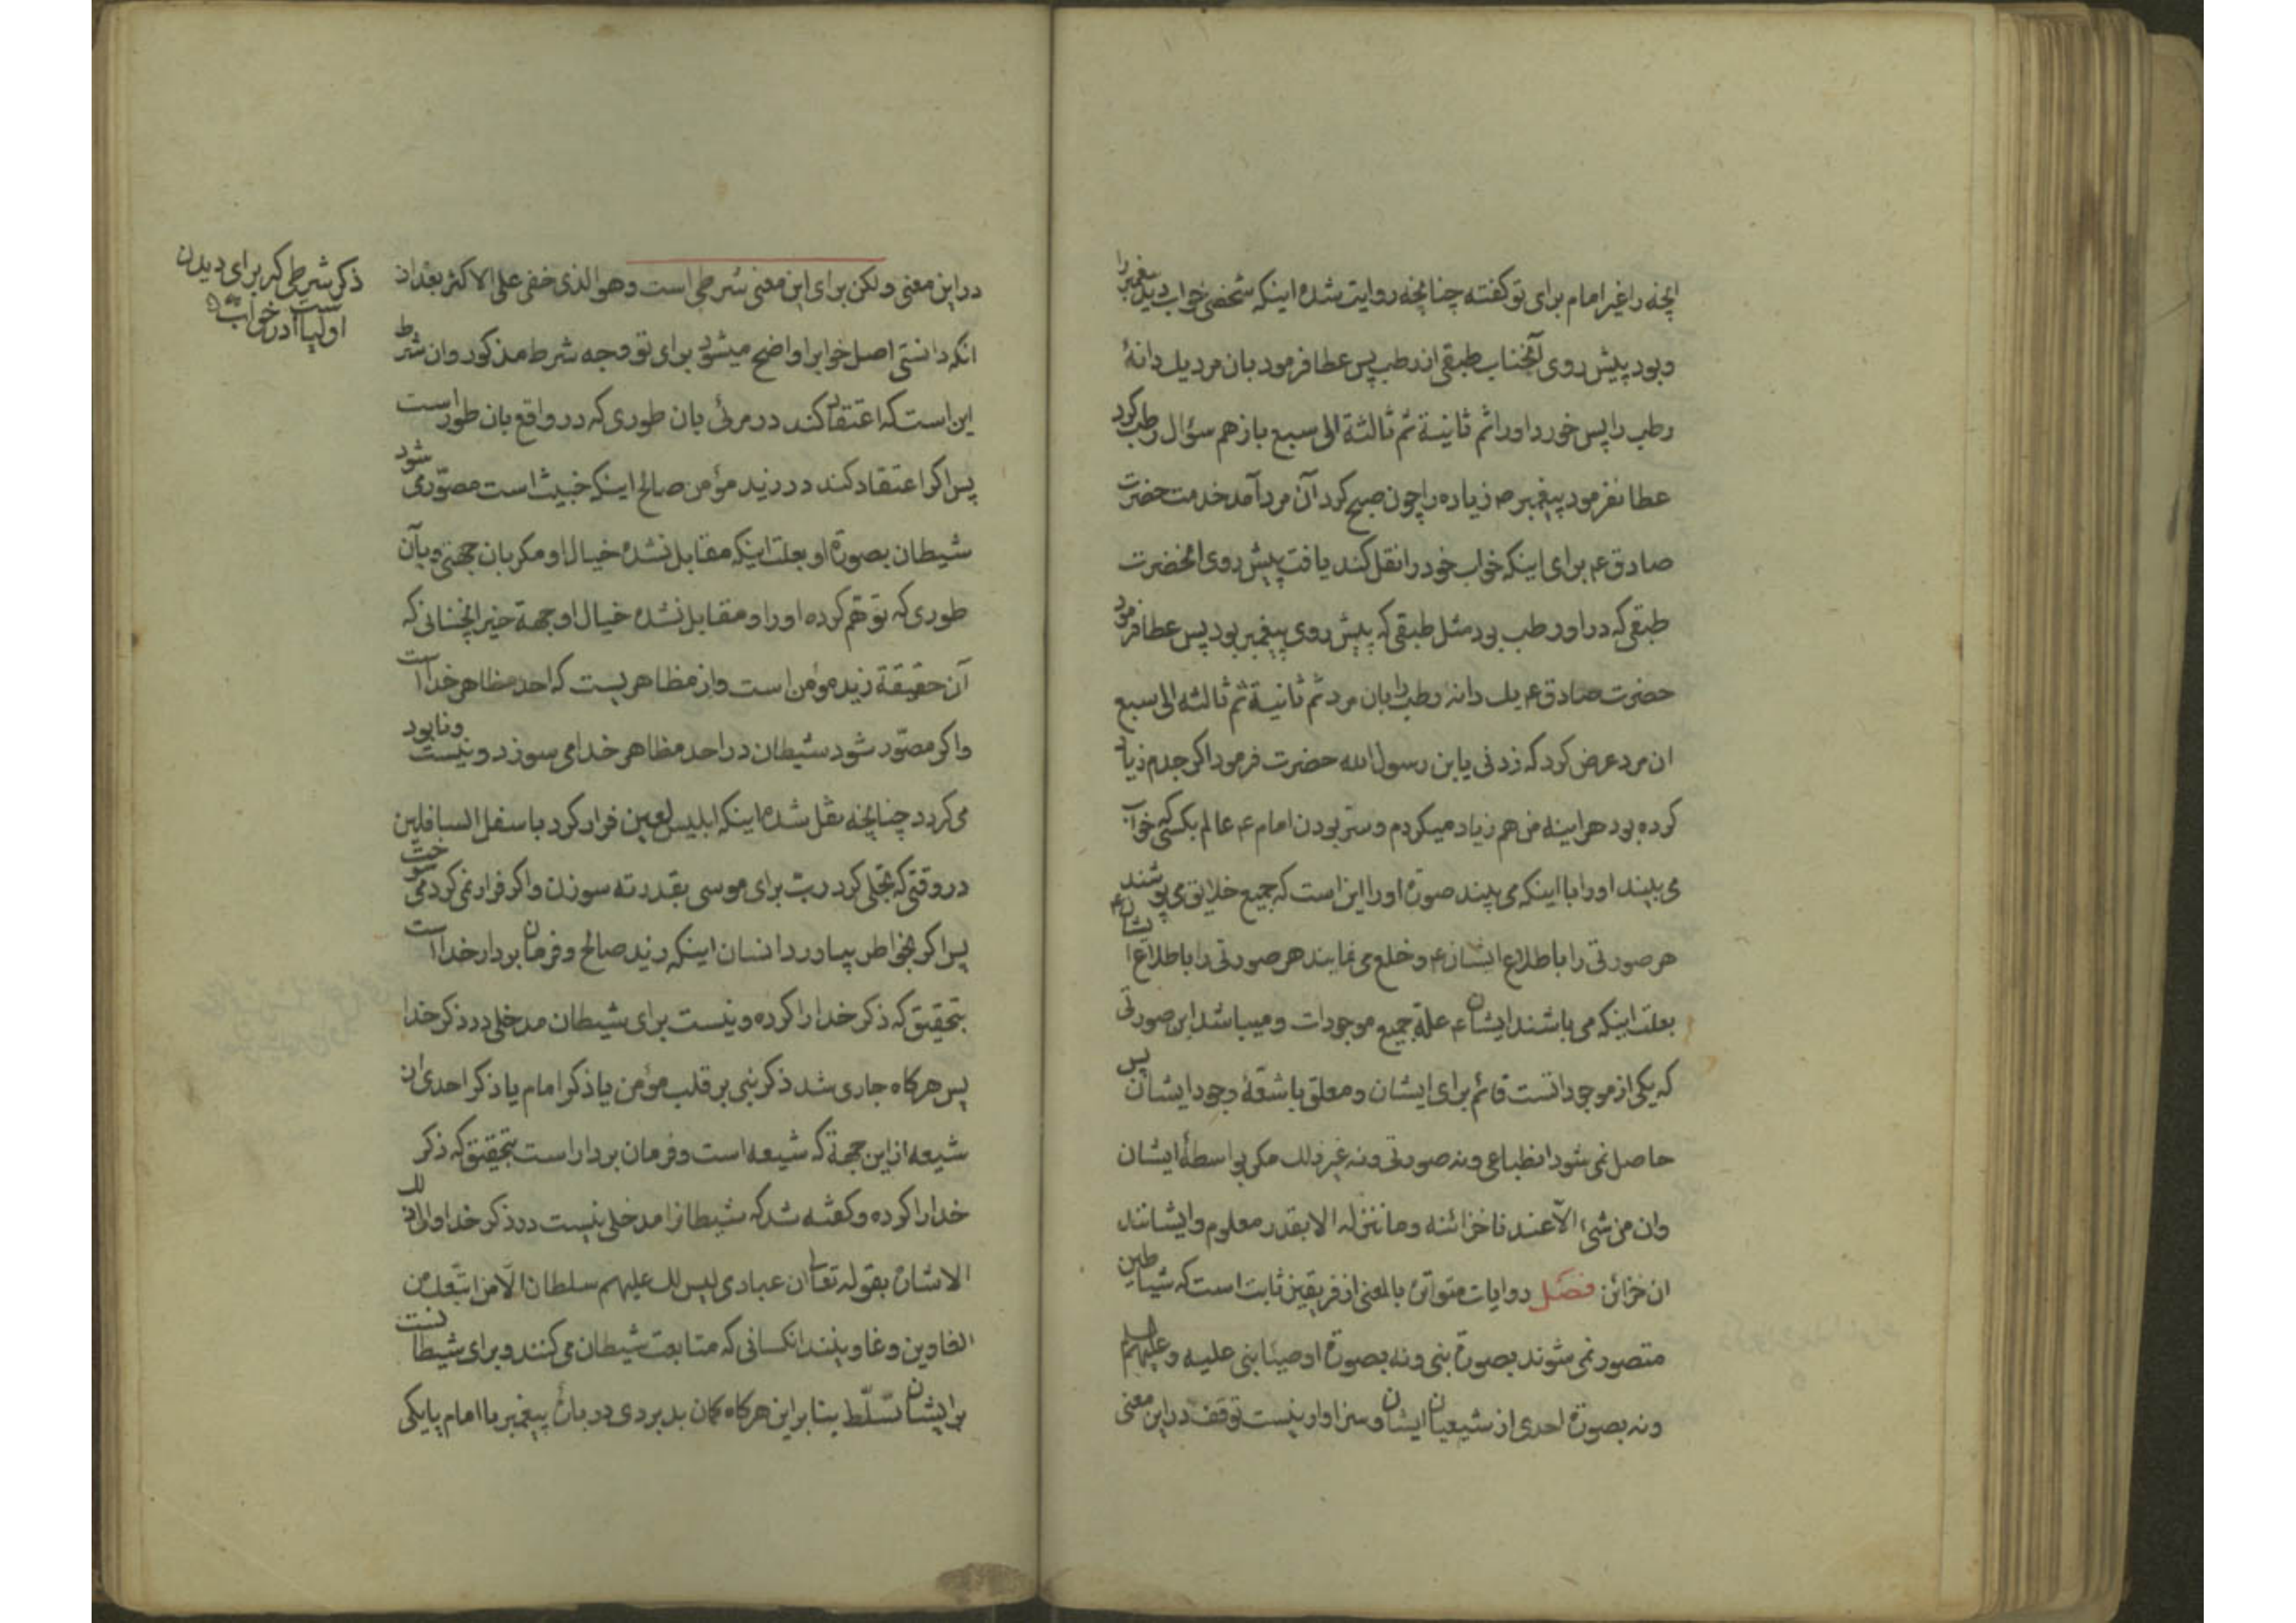 انچه را غیر امام برای تو کفته چنانچه روایت شده اینکه شخصی خواب دید پیغمبر را
و بود پیش روی آنجناب طبقی از رطب پس عطا فرمود بان مرد یك دانهٔ
رطب را پس خورد او را ثم ثانیة ثم ثالثة الی سبع باز هم سؤال رطب کرد
عطا نفرمود پیغمبر ص زیاده را چون صبح کرد آن مرد آمد خدمت حضرت
صادق ع برای اینکه خواب خود را نقل کند یافت پیش روی انحضرت
طبقی که در او رطب بود مثل طبقی که پیش روی پیغمبر بود پس عطا فرمود
حضرت صادق ع یك دانه رطب را بان مرد ثم ثانیة ثم ثالثه الی سبع
ان مرد عرض کرد که زدنی یابن رسول الله حضرت فرمود اکر جدم زیاد
کرده بود هراینه من هم زیاد میکردم و ستر بودن امام ع عالم بکسی که خواب
می بیند او را با اینکه می بیند صورة او را این است که جمیع خلایق می پوشند
هر صورتی را باطلاع ایشان ع و خلع می نمایند هر صورتی را باطلاع ایشان ع
بعلت اینکه می باشند ایشان ع علة جمیع موجودات و میباشد این صورتی
که یکی از موجوداتست قائم برای ایشان و معلق باشعّهٔ وجود ایشان پس
حاصل نمی شود انطباعی و نه صورتی و نه غیر ذلك مکر بواسطهٔ ایشان
وان من شیء الّا عندنا خزائنه وما ننزله الا بقدر معلوم و ایشانند
ان خزائن فصل روایات متواترهٔ بالمعنی از فریقین ثابت است که شیاطین
متصور نمی شوند بصورة نبی و نه بصورة اوصیٓا نبی علیه و علیهم السلم
و نه بصورة احدی از شیعیان ایشان و سزاوار نیست توقف در این معنی
در این معنی ولکن برای این معنی شرطی است وهو الذی خفی علی الاکثر بعد از
انکه دانستی اصل خوابرا واضح میشود برای تو وجه شرط مذکور و ان شرط
این است که اعتقاد کند در مرئی بان طوری که در واقع بان طور است
پس اکر اعتقاد کند در زید مؤمن صالح اینکه خبیث است مصوّر می شود
شیطان بصورة او بعلت اینکه مقابل نشده خیال او مکر بان جهتی و بآن
طوری که توهّم کرده او را و مقابل نشده خیال او جهة خیر انچنانی که
آن حقیقة زید مؤمن است و از مظاهریست که احد مظاهر خدا است
و اکر مصوّر شود شیطان در احد مظاهر خدا می سوزد و نیست و نابود
می کردد چنانچه نقل شده اینکه ابلیس لعین فرار کرد باسفل السافلین
در وقتی که تجلی کرد ربّ برای موسی بقدر ته سوزن و اکر فرار نمی کرد می سوخت
پس اکر بخواطر بیاورد انسان اینکه زید صالح و فرمان بردار خدا است
بتحقیق که ذکر خدا را کرده و نیست برای شیطان مدخلی در ذکر خدا
پس هر کاه جاری شد ذکر نبی بر قلب مؤمن یا ذکر امام یا ذکر احدی از
شیعه از این جهة که شیعه است و فرمان بردار است بتحقیق که ذکر
خدا را کرده و کفته شد که شیطانرا مدخلی نیست در ذکر خدا و الی ذلك
الاشارة بقوله تعالی ان عبادی لیس لك علیهم سلطان الّا من اتّبعك من
الغاوین و غاوینند انکسانی که متابعت شیطان می کنند و برای شیطانست
بر ایشان تسلّط بنا بر این هر کاه کمان بد بردی در بارهٔ پیغمبر یا امام یا یکی
ذکر شرطی که برای دیدن
اولیا است در خواب